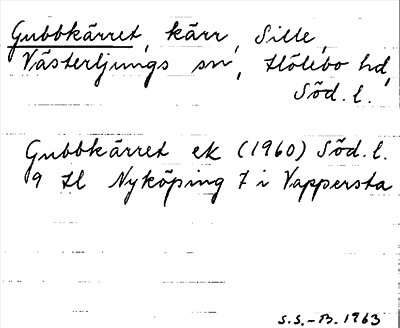 Gubbkärret, kärr, Sille,
Västerljungs sn, Hölebo hd,
Söd. l.
Gubbkärret ek (1960) Söd. l.
9 H Nyköping 7 i Vappersta
S.S.-B. 1963